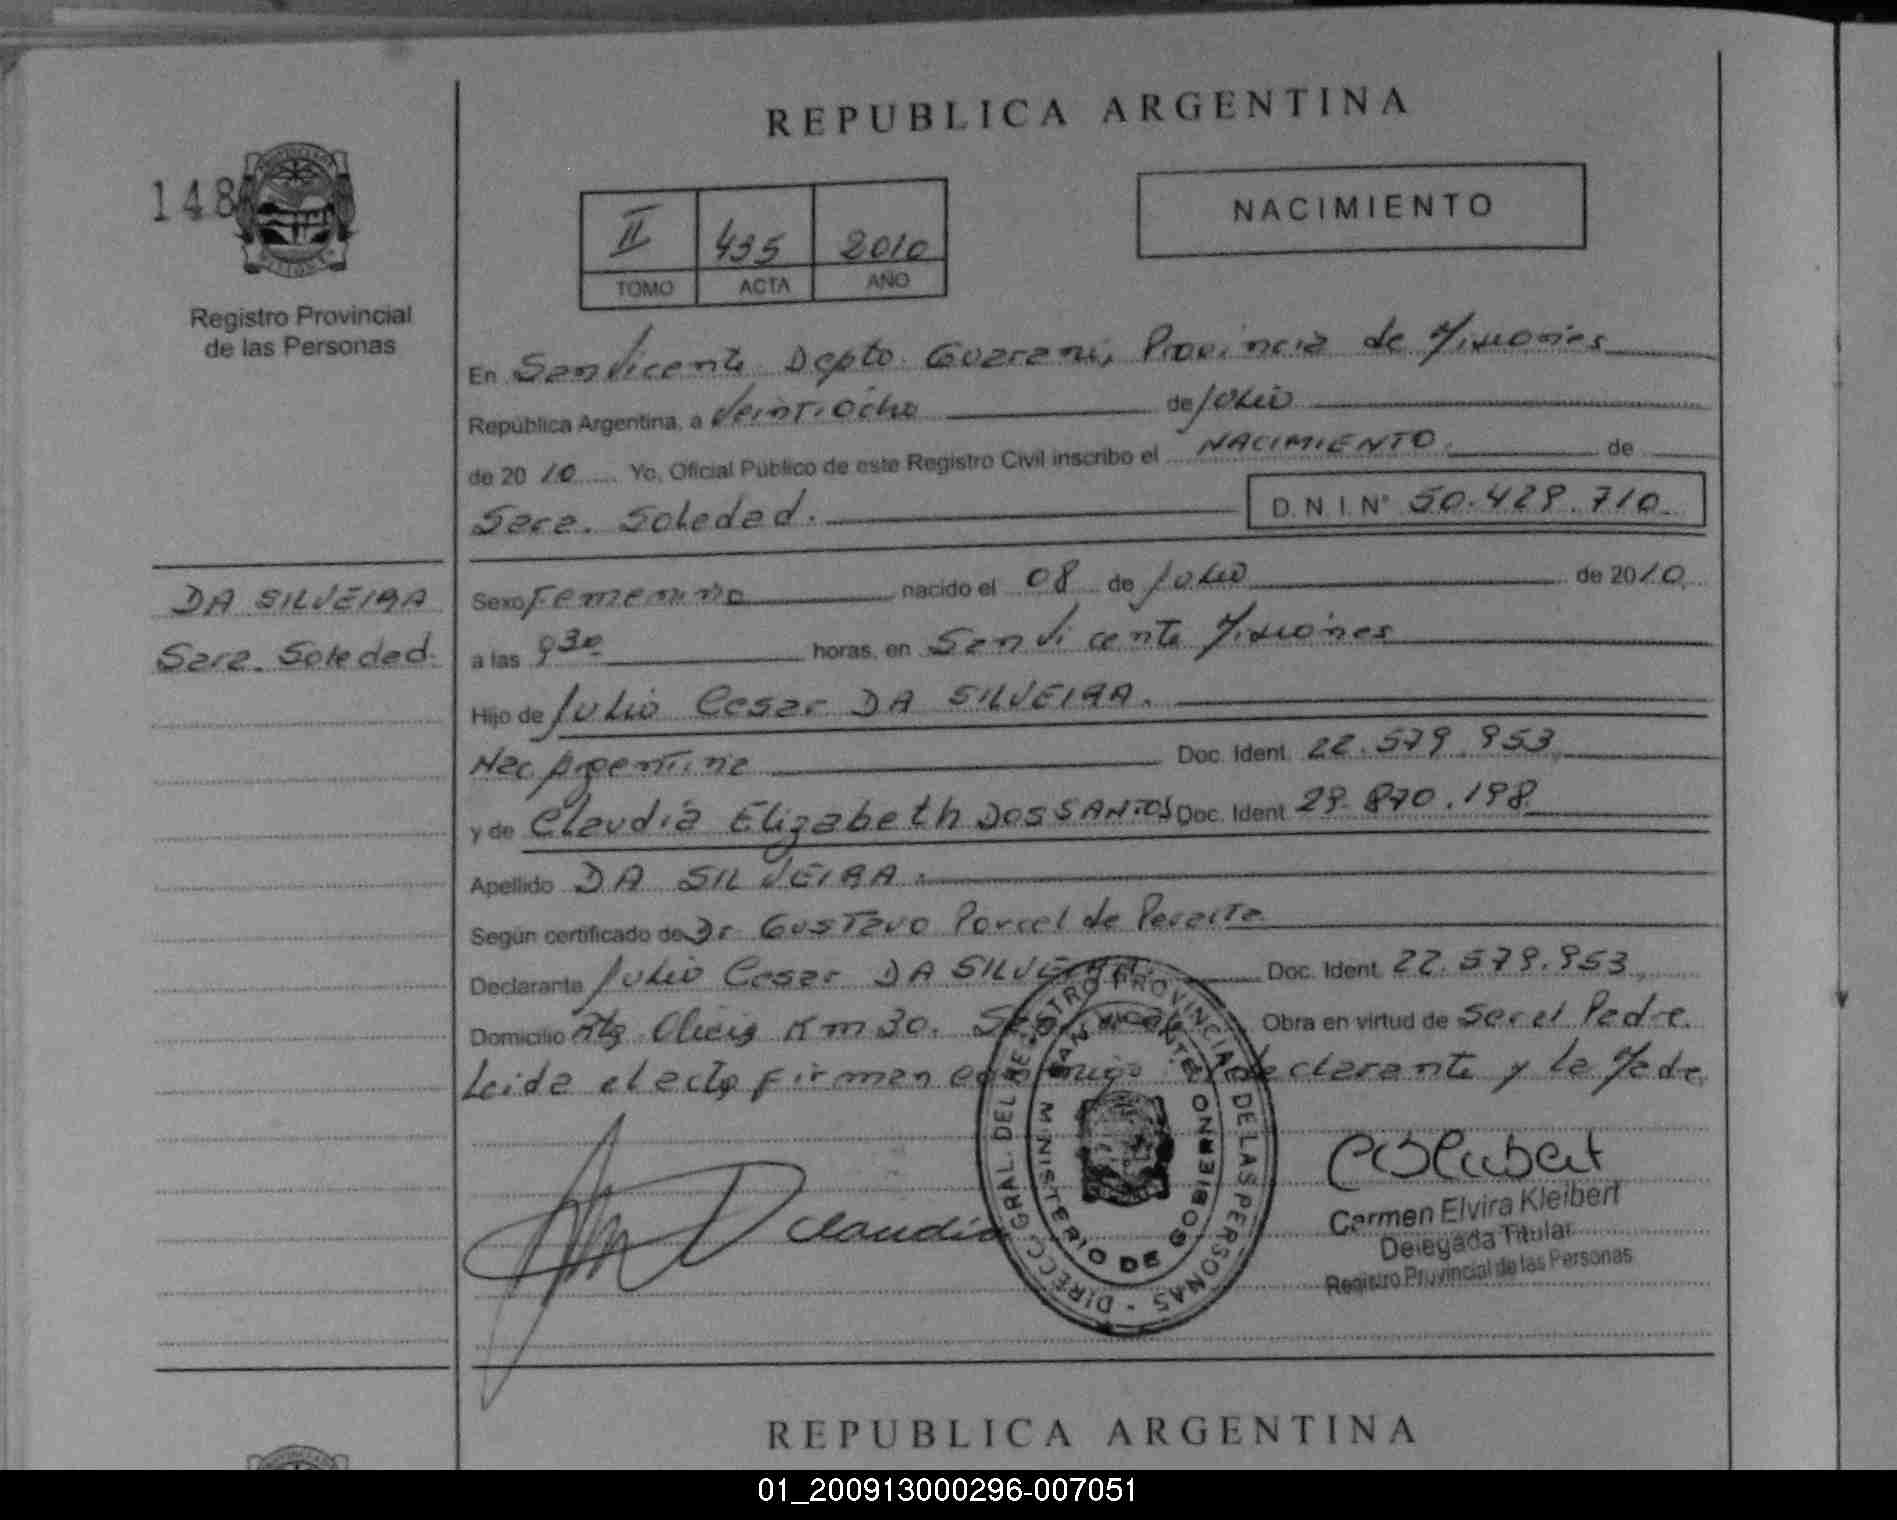 REPUBLICA ARGENTINA
148
NACIMIENTO
II 435 2010
TOMO ACTA AÑO
Registro Provincial
de las Personas
En San Vicente Depto Guarani, Provincia de Misiones
República Argentina, a Veintiocho de Julio
de 2010 Yo, Oficial Público de este Registro Civil inscribo el NACIMIENTO. de
Sara. Soledad. D. N. I. N° 50.429.710
DA SILVEIRA
Sara. Soledad.
Sexo Femenino nacido el 08 de Julio de 2010
a las 930 horas, en San Vicente Misiones
Hijo de Julio Cesar DA SILVEIRA.
Nac Argentina Doc. Ident. 22.579.953
y de Claudia Elizabeth DOS SANTOS Doc. Ident 29.870.198
Apellido DA SILVEIRA.
Según certificado de Dr Gustavo Porcel de Peralta
Declarante Julio Cesar DA SILVEIRA. Doc. Ident. 22.579.953
Domicilio Km 30. Obra en virtud de Ser el Padre.
Leida el acta firman conmigo el declarante y la Madre
Claudia
DIRECC. GRAL. DEL REGISTRO PROVINCIAL DE LAS PERSONAS -
MINISTERIO DE GOBIERNO
SAN VICENTE
Carmen Elvira Kleibert
Delegada Titular
Registro Provincial de las Personas
REPUBLICA ARGENTINA
01_200913000296-007051